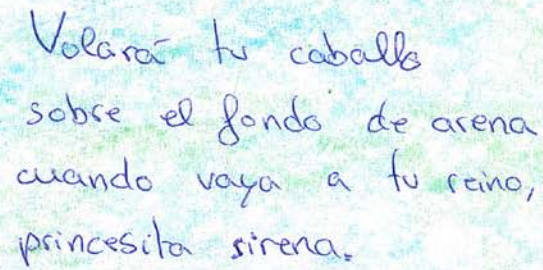 Volará tu caballo
sobre el fondo de arena
cuando vaya a tu reino,
princesita sirena.